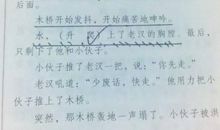 后面。
木桥开始发抖，开始痛苦地呻吟。
水，（升 爬）上了老汉的胸膛。最后，
只剩下他和小伙子。
小伙子推了老汉一把，说：“你先走。”
老汉吼道：“少废话，快走。”他用力把小
伙子推上了木桥。
突然，那木桥轰地一声塌了。小伙子被洪